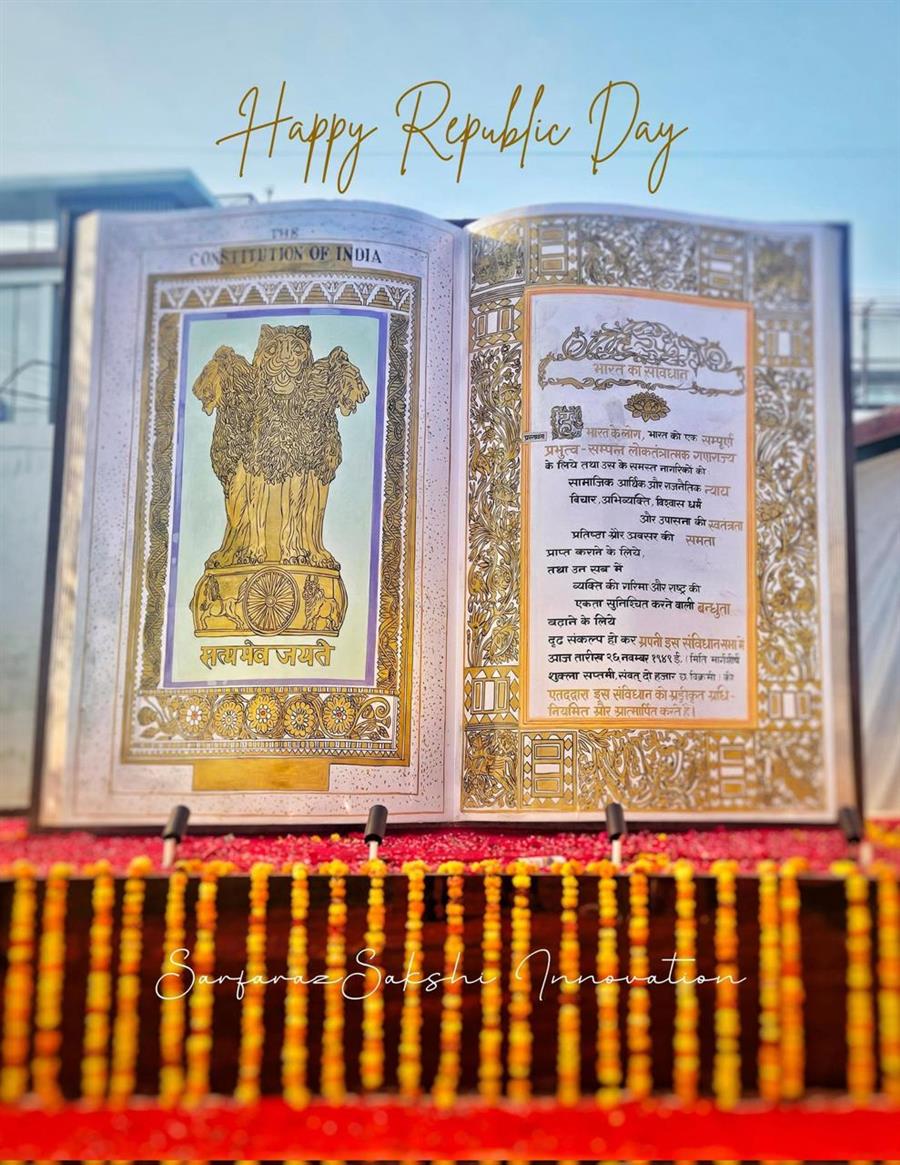 Happy Republic Day
THE
CONSTITUTION OF INDIA
सत्यमेव जयते
भारत का संविधान
हम
भारत के लोग, भारत को एक सम्पूर्ण
प्रभुत्व-सम्पन्न लोकतंत्रात्मक गणराज्य
के लिये तथा उस के समस्त नागरिकों को
सामाजिक आर्थिक और राजनैतिक न्याय
विचार, अभिव्यक्ति, विश्वास धर्म
और उपासना की स्वतंत्रता
प्रतिष्ठा और अवसर की समता
प्राप्त कराने के लिये,
तथा उन सब में
व्यक्ति की गरिमा और राष्ट्र की
एकता सुनिश्चित करने वाली बन्धुता
बढाने के लिये
दृढ संकल्प हो कर अपनी इस संविधान सभा में
आज तारीख २६ नवम्बर १९४९ ई. (मिति मार्गशीर्ष
शुक्ला सप्तमी, संवत् दो हजार छ विक्रमी) को
एतद्द्वारा इस संविधान को अङ्गीकृत अधि-
नियमित और आत्मार्पित करते हैं।
Sarfaraz Sakshi Innovation